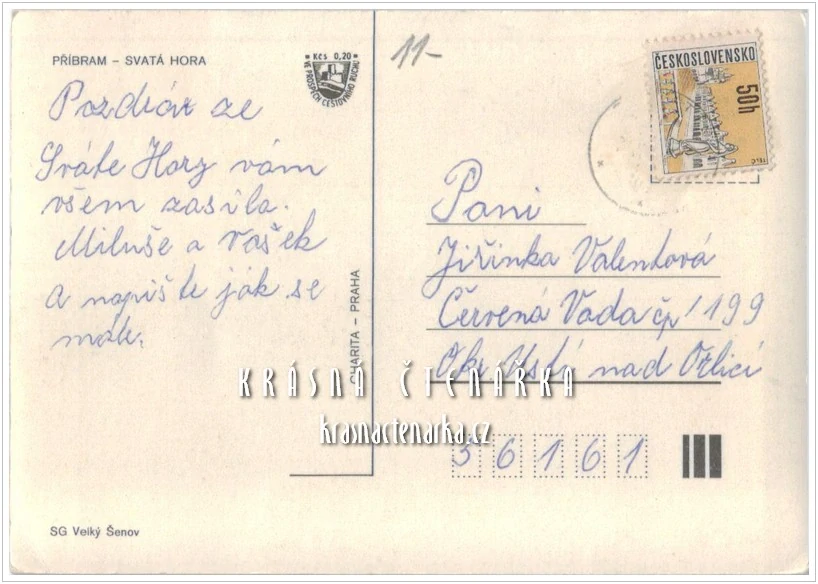 PŘÍBRAM – SVATÁ HORA
Kčs 0,20
VE PROSPĚCH CESTOVNÍHO RUCHU
11-
ČESKOSLOVENSKO
50h
TELČ
Pozdrav ze
Sváte Hory vám
všem zasíla.
Miluše a Vašek
a napište ják se
máte.
CHARITA – PRAHA
Paní
Jiřinka Valentová
Červená Voda čp 199
Okr Ustí nad Orlicí
KRÁSNÁ ČTENÁŘKA
krasnactenarka.cz
56161
SG Velký Šenov